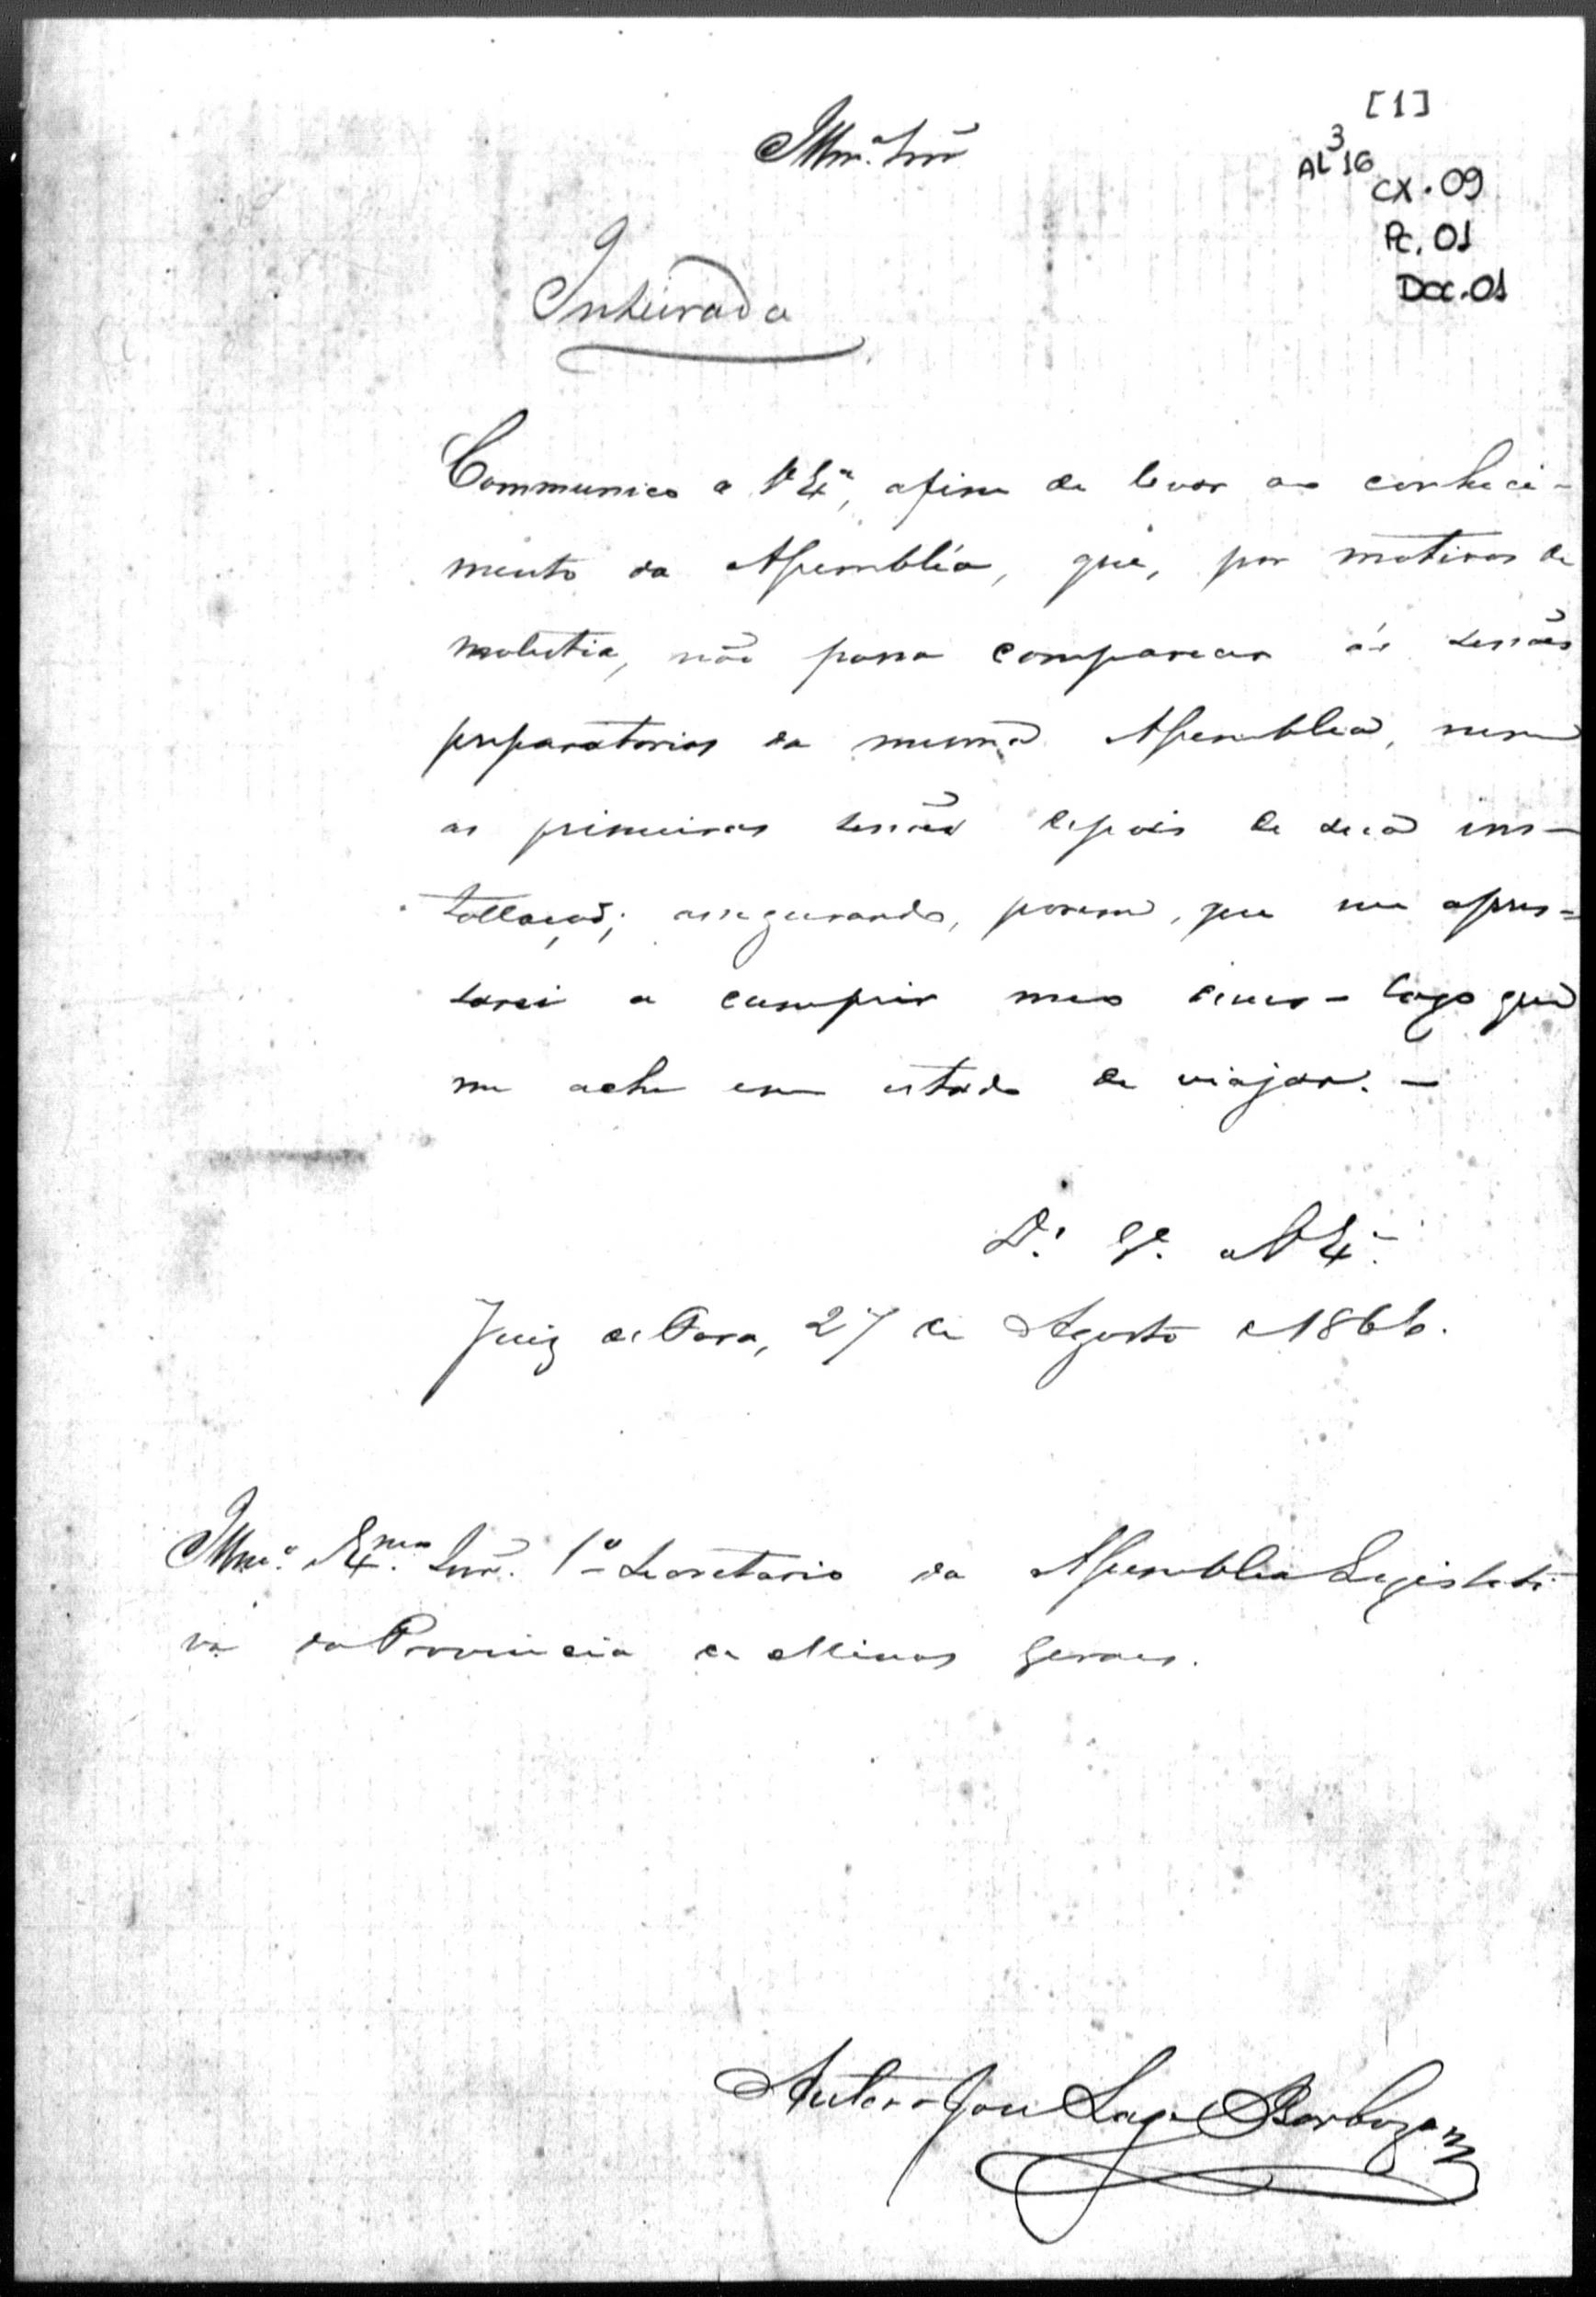 [1]
Illm.º Snr
AL 3 16
CX. 09
Pc. 01
Doc. 01
Inteirada
Communico a V Ex.ª, afim de levar ao conheci-
mento da Assembléa, que, por motivos de
molestia, não posso comparecer ás sessões
preparatorias da mesma Assembléa, nem
as primeiras sessões depois de sua ins-
tallação; assegurando, porem, que me apres-
sarei a cumprir meo dever - logo que
me ache em estado de viajar. -
D.s G.e a V Ex.ª
Juiz de Fora, 27 de Agosto de 1866.
Illm.º e Ex.mo Snr. 1º Secretario da Assembléa Legislati-
va da Provincia de Minas Geraes.
Antero José Lage Barboza